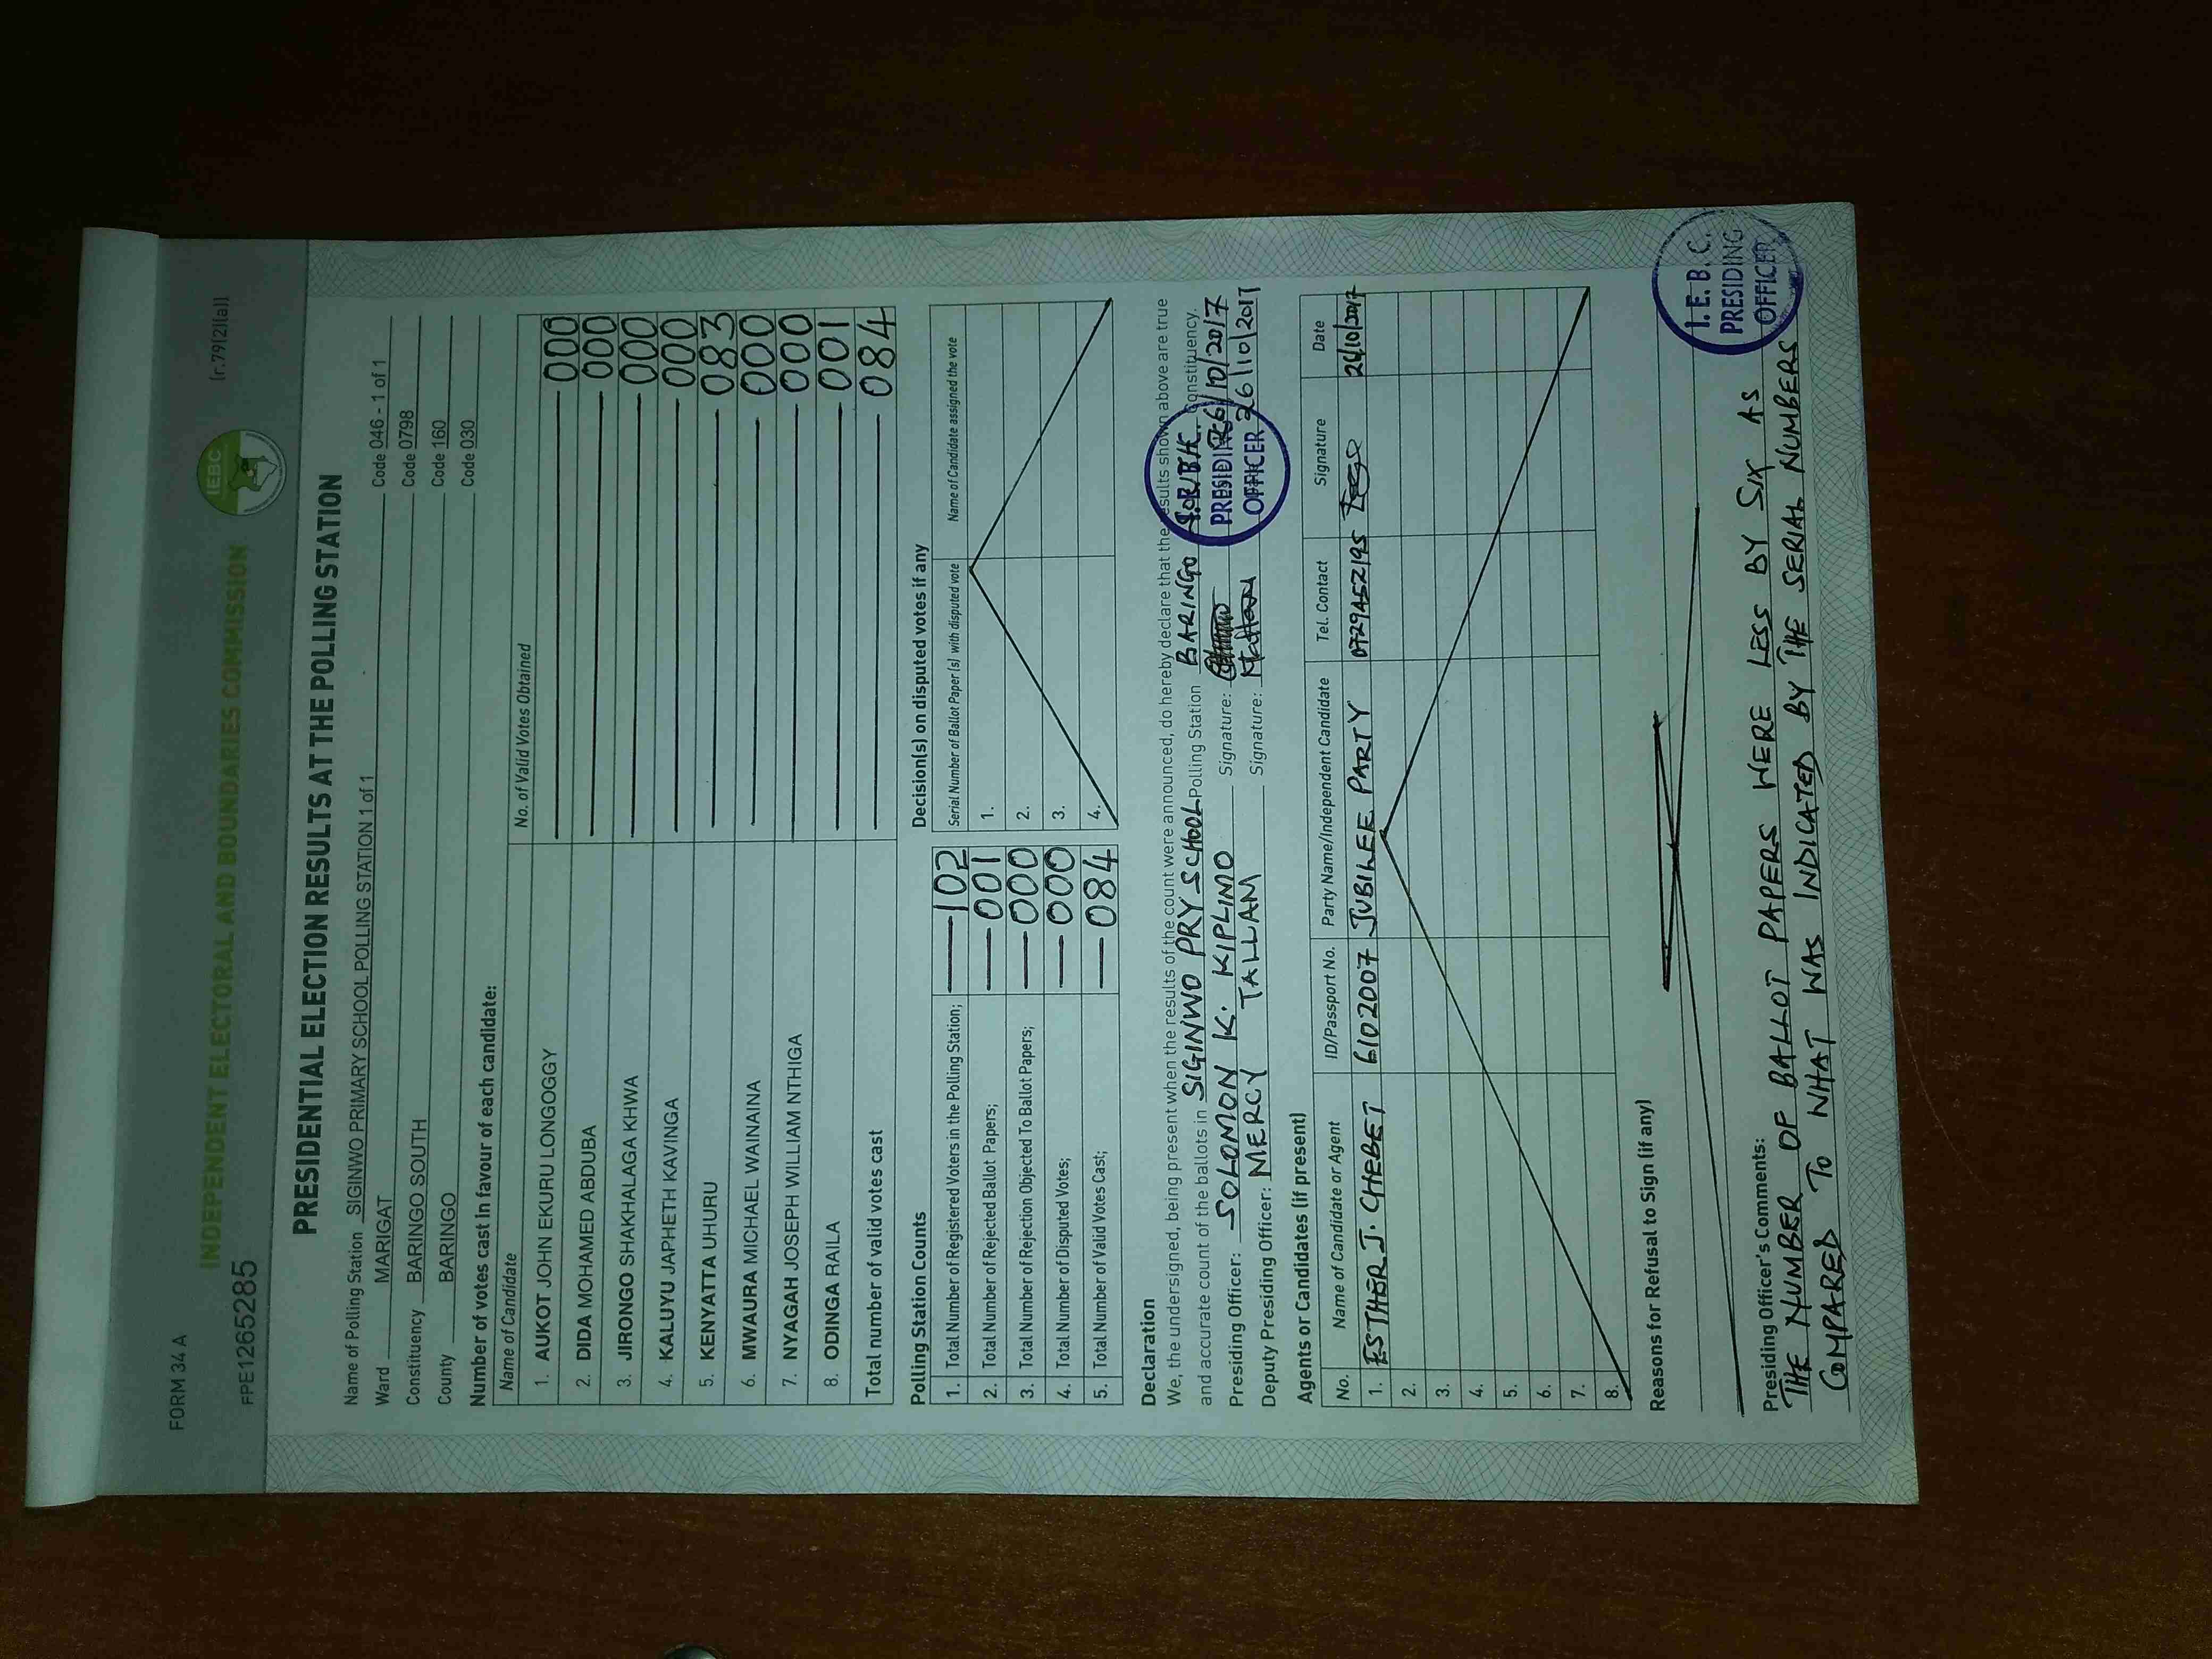 FORM 34 A
(r.79(2)(a))
IEBC
INDEPENDENT ELECTORAL AND BOUNDARIES COMMISSION
FPE1265285
PRESIDENTIAL ELECTION RESULTS AT THE POLLING STATION
Name of Polling Station SIGINWO PRIMARY SCHOOL POLLING STATION 1 of 1 Code 046 - 1 of 1
Ward MARIGAT Code 0798
Constituency BARINGO SOUTH Code 160
County BARINGO Code 030
Number of votes cast in favour of each candidate:
Name of Candidate No. of Valid Votes Obtained
1. AUKOT JOHN EKURU LONGOGGY 000
2. DIDA MOHAMED ABDUBA 000
3. JIRONGO SHAKHALAGA KHWA 000
4. KALUYU JAPHETH KAVINGA 000
5. KENYATTA UHURU 083
6. MWAURA MICHAEL WAINAINA 000
7. NYAGAH JOSEPH WILLIAM NTHIGA 000
8. ODINGA RAILA 001
Total number of valid votes cast 084
Polling Station Counts
1. Total Number of Registered Voters in the Polling Station; 102
2. Total Number of Rejected Ballot Papers; 001
3. Total Number of Rejection Objected To Ballot Papers; 000
4. Total Number of Disputed Votes; 000
5. Total Number of Valid Votes Cast; 084
Decision(s) on disputed votes if any
Serial Number of Ballot Paper (s) with disputed vote Name of Candidate assigned the vote
1.
2.
3.
4.
Declaration
We, the undersigned, being present when the results of the count were announced, do hereby declare that the results shown above are true
and accurate count of the ballots in SIGINWO PRY SCHOOL Polling Station BARINGO Constituency.
Presiding Officer: SOLOMON K. KIPLIMO Signature: 26/10/2017
Deputy Presiding Officer: MERCY TALLAM Signature: 26/10/2017
PRESIDING
OFFICER
Agents or Candidates (if present)
No. Name of Candidate or Agent ID/Passport No. Party Name/Independent Candidate Tel. Contact Signature Date
1. ESTHER J. CHEBET 6102007 JUBILEE PARTY 0729452195 26/10/2017
2.
3.
4.
5.
6.
7.
8.
Reasons for Refusal to Sign (if any)
I.E.B.C.
PRESIDING
OFFICER
Presiding Officer's Comments:
THE NUMBER OF BALLOT PAPERS WERE LESS BY SIX AS
COMPARED TO WHAT WAS INDICATED BY THE SERIAL NUMBERS